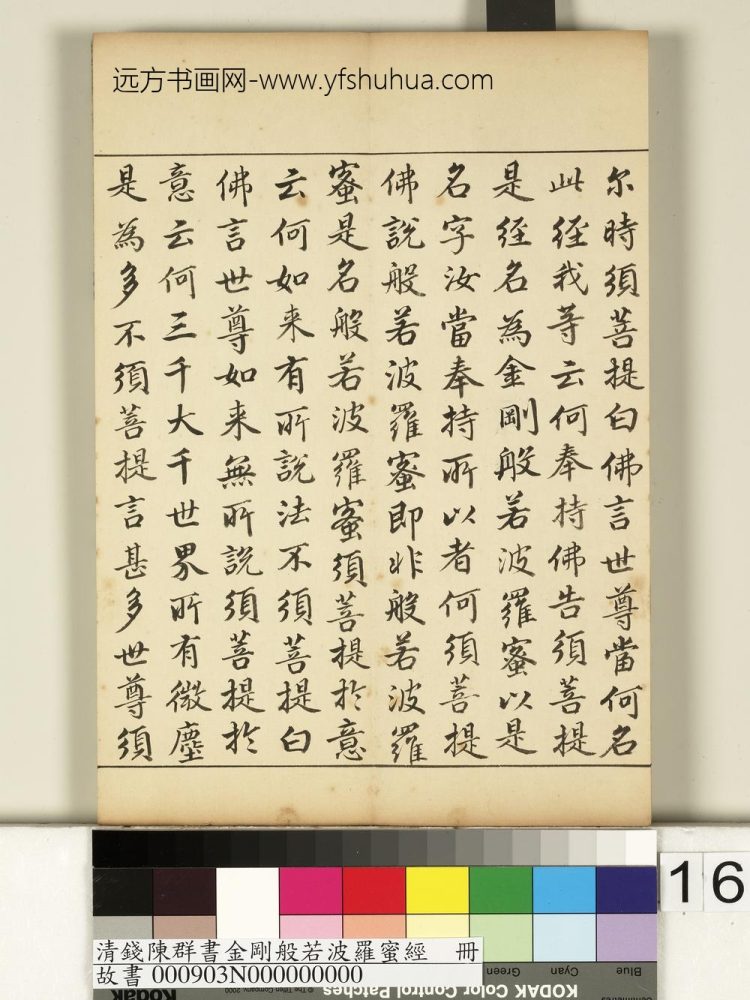 远方书画网-www.yfshuhua.com
尔時須菩提白佛言世尊當何名
此經我等云何奉持佛告須菩提
是經名為金剛般若波羅蜜以是
名字汝當奉持所以者何須菩提
佛說般若波羅蜜即非般若波羅
蜜是名般若波羅蜜須菩提於意
云何如来有所說法不須菩提白
佛言世尊如来無所說須菩提於
意云何三千大千世界所有微塵
是為多不須菩提言甚多世尊須
16
清錢陳群書金剛般若波羅蜜經 冊
故書 000903N000000000
Green Cyan Blue
KODAK Color Control Patches
Kodak
© The Tiffen Company, 2000